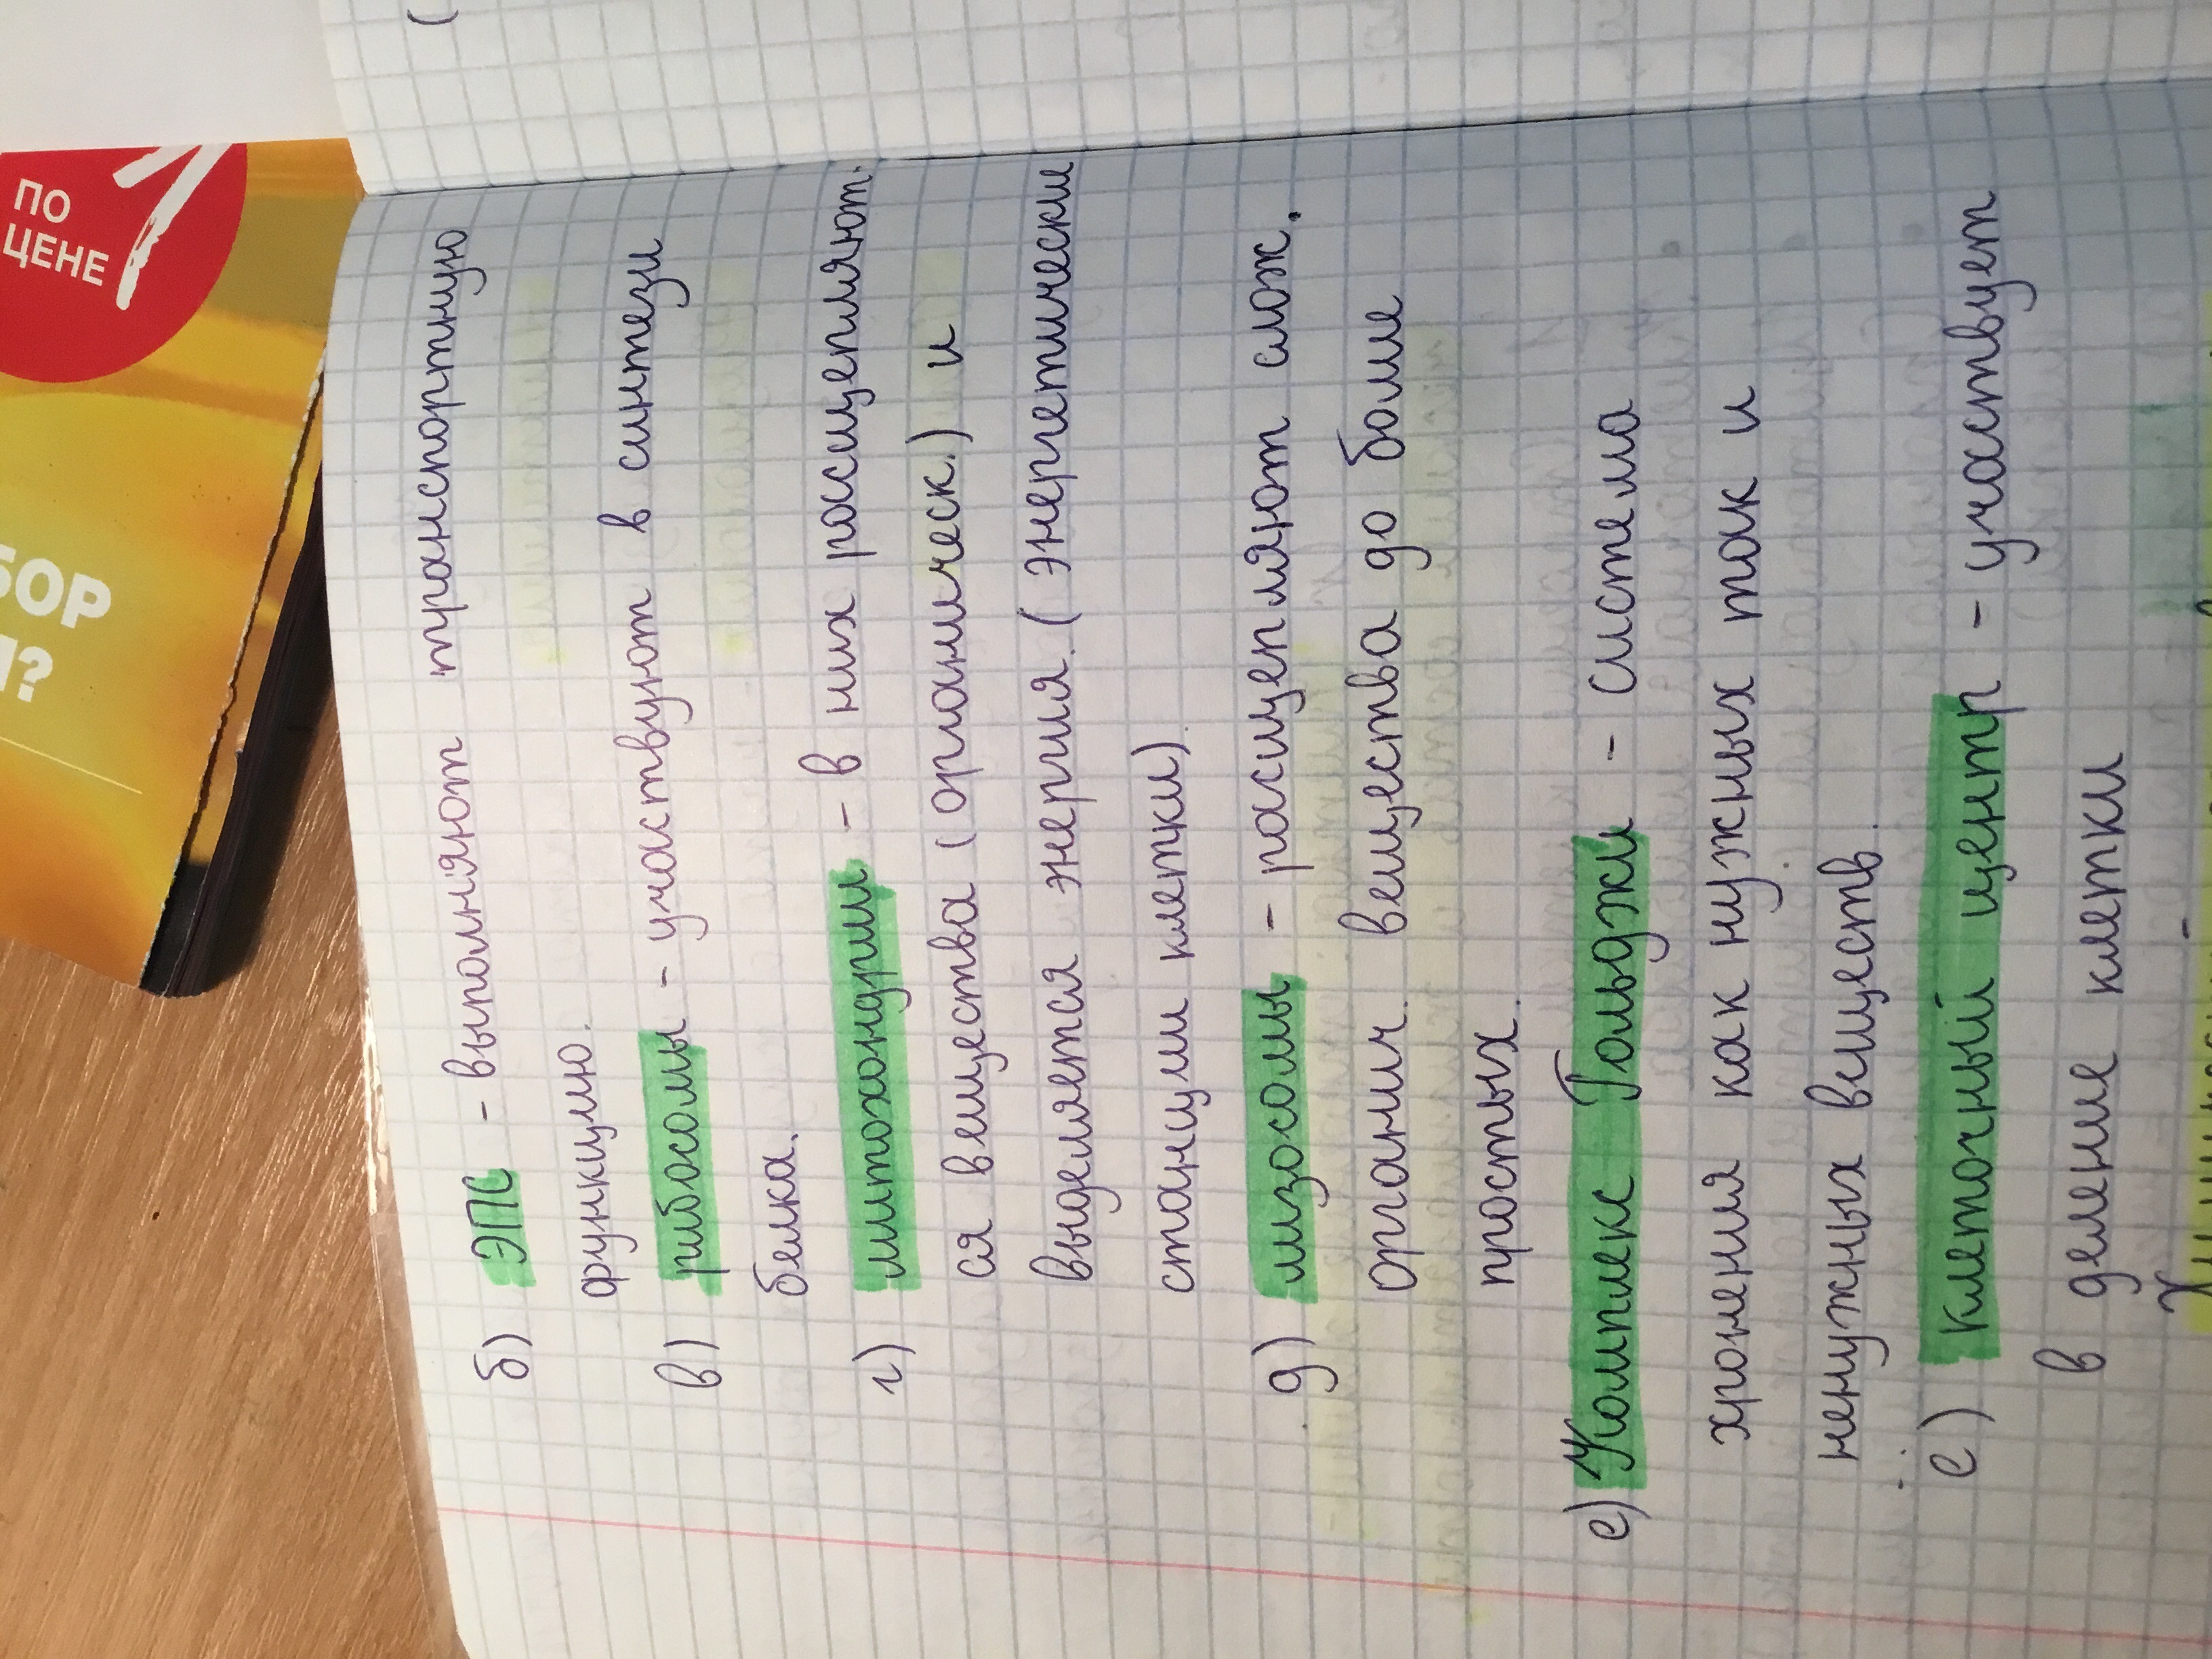 б) ЭПС - выполняют транспортную
функцию.
в) рибосомы - участвуют в синтези
белка.
г) митохондрии - в них росщепляют.
ся вещества (органическ.) и
выделяется энергия. (энергетически
станции клетки).
д) лизосомы - расщепляют слож.
органич. вещества до более
простых.
е) Комплекс Гольджи - система
хронения как нужных так и
ненужных веществ.
е) клеточный центр - участвует
в деление клетки
ПО
ЦЕНЕ
1
БОР
?